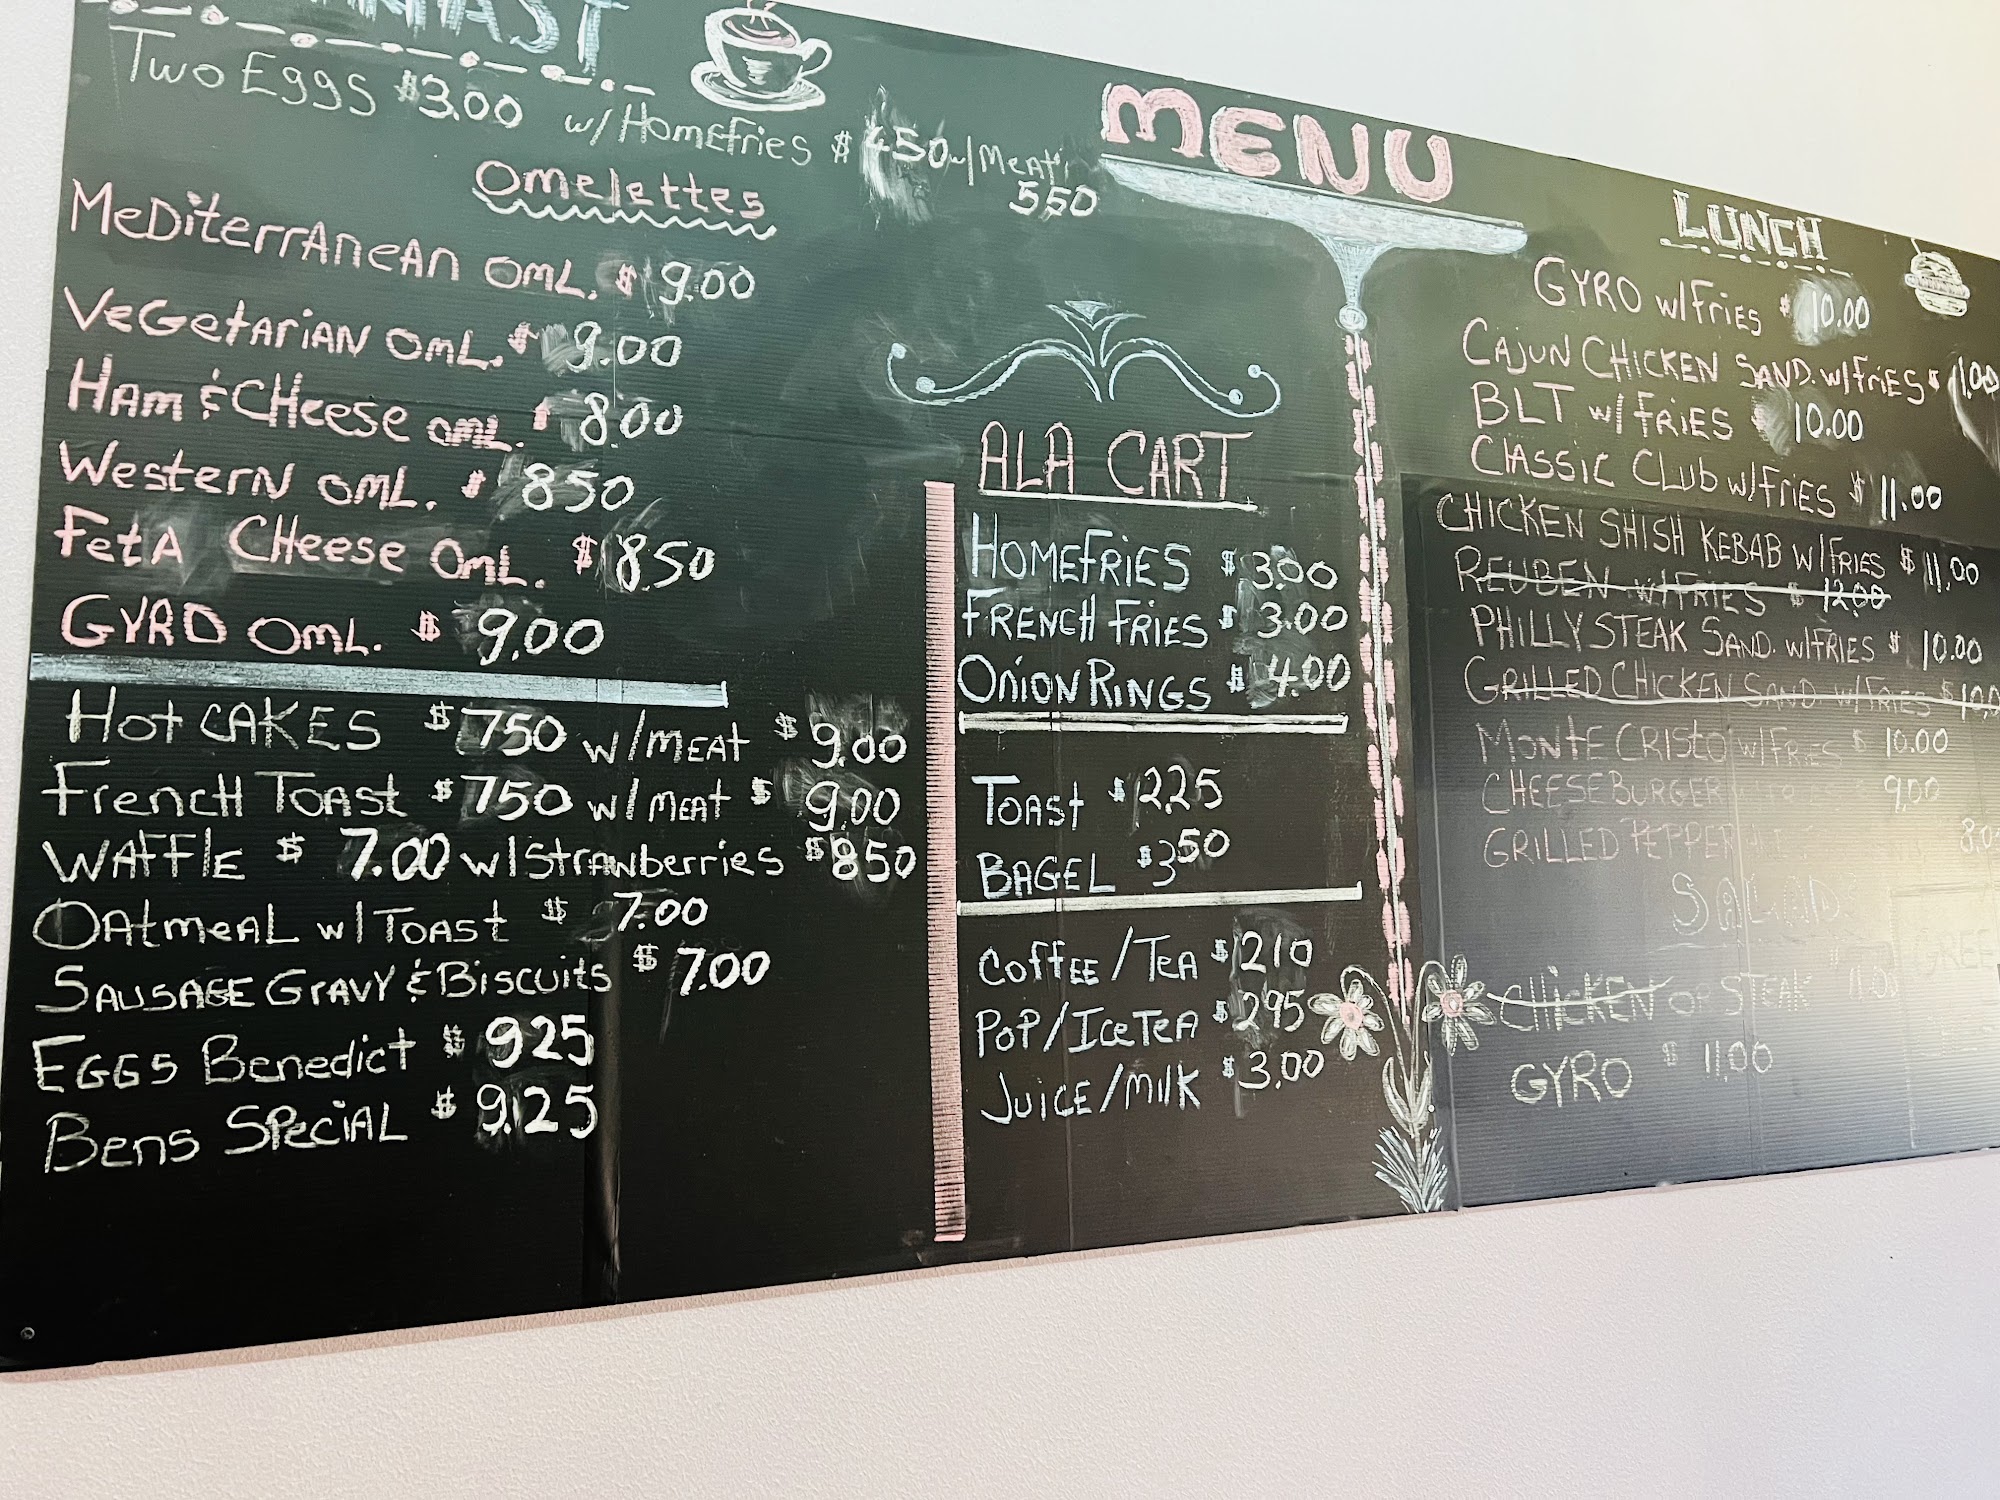 MENU
Two Eggs $3.00 w/Homefries $4.50 w/Meat
5.50
Omelettes
Mediterranean Oml. $9.00
Vegetarian Oml. $9.00
Ham & Cheese Oml. $8.00
Western Oml. $850
Feta Cheese Oml. $8.50
GYRO Oml. $9.00
Hot CAKES $750 w/MEAT $9.00
French Toast $750 w/MEAT $9.00
WAFFlE $7.00 w/Strawberries $850
Oatmeal w/Toast $7.00
Sausage Gravy & Biscuits $7.00
Eggs Benedict $925
Bens Special $9.25
ALA CART
HOMEFRIES $3.00
FRENCH FRIES $3.00
ONION RINGS $4.00
TOAST $2.25
BAGEL $350
Coffee/Tea $210
Pop/Ice Tea $295
Juice/Milk $3.00
LUNCH
GYRO w/Fries $10.00
CAJUN CHICKEN SAND. w/FRIES $11.00
BLT w/FRIES $10.00
Classic Club w/Fries $11.00
CHICKEN SHISH KEBAB w/FRIES $11.00
REUBEN w/FRIES $12.00
PHILLY STEAK SAND. w/FRIES $10.00
GRILLED CHICKEN SAND w/FRIES $10.0
MONTE CRISTO w/FRIES $10.00
CHEESEBURGER 9.00
GRILLED PEPPER 8.0
SALADS
CHICKEN OR STEAK 11.00
GYRO $11.00